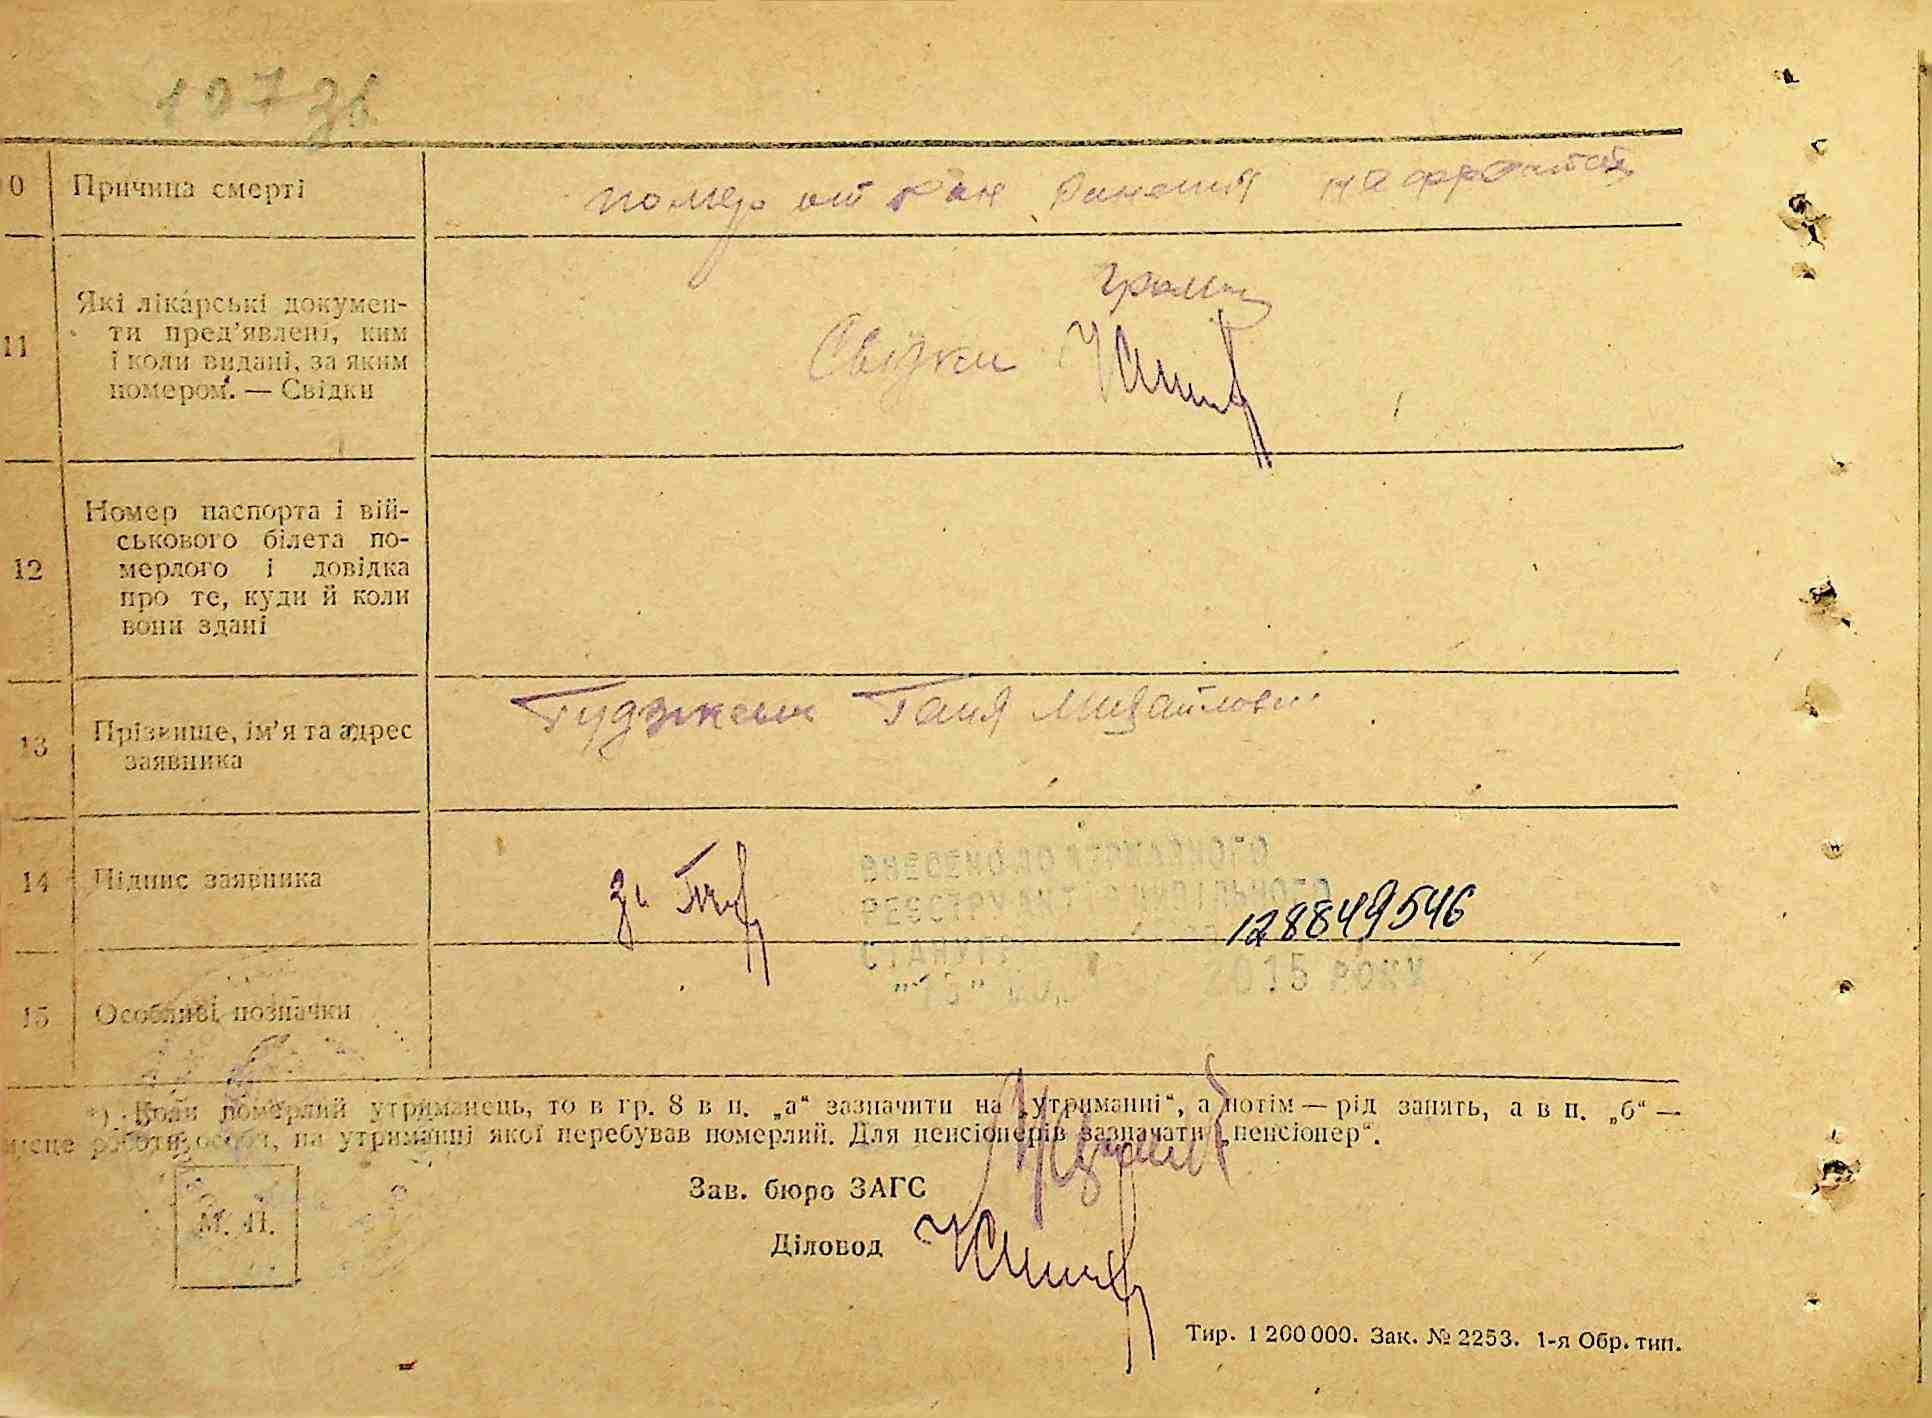 107 зв
10 Причина смерті
помер от ран ранения на фронте
11 Які лікарські докумен-
ти пред'явлені, ким
і коли видані, за яким
номером. — Свідки
Свідки
12 Номер паспорта і вій-
ськового білета по-
мерлого і довідка
про те, куди й коли
вони здані
13 Прізвище, ім'я та адрес
заявника
Ганя Михайловна
14 Підпис заявника
за
ВНЕСЕНО ДО ДЕРЖАВНОГО
РЕЄСТРУ АКТІВ ЦИВІЛЬНОГО
СТАНУ
128849546
"15" 2015 РОКУ
15 Особливі позначки
*) Коли померлий утриманець, то в гр. 8 в п. „а“ зазначити на „утриманні“, а потім — рід занять, а в п. „б“ —
місце роботи особи, на утриманні якої перебував померлий. Для пенсіонерів зазначати „пенсіонер“.
Зав. бюро ЗАГС
М. П.
Діловод
Тир. 1 200 000. Зак. № 2253. 1-я Обр. тип.